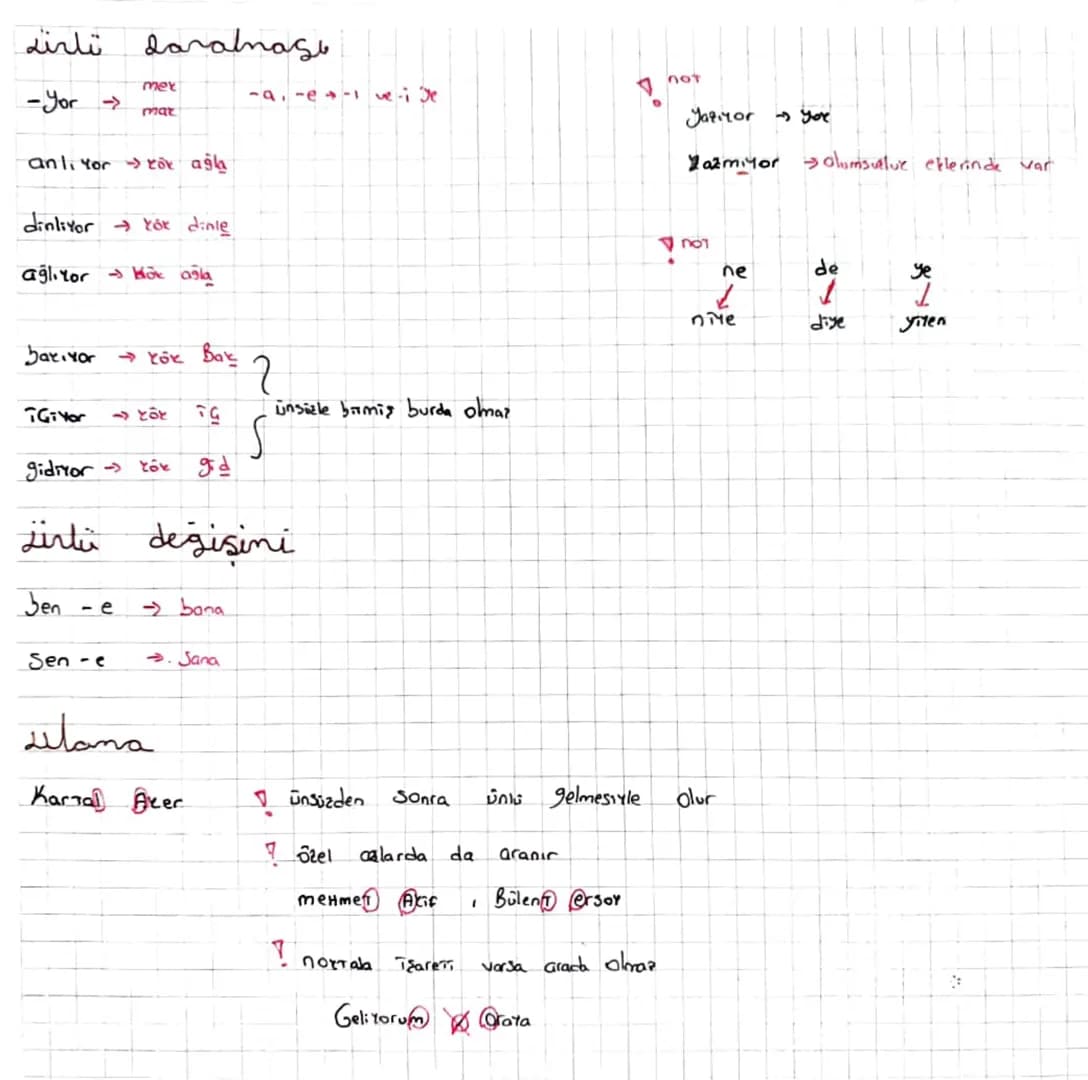 ünlü daralması
-yor → mek mak -a, -e → -ı ve -i ye
anlıyor → kök ağla
dinliyor → kök dinle
ağlıyor → kök ağla
bakıyor → kök Bak
içiyor → kök iç
gidiyor → kök gid
ünsüzle bitmiş burda olmaz
! not
yazıyor → yok
Yazmıyor → olumsuzluk eklerinde var
! not
ne de ye
niye diye yiyen
ünlü değişimi
ben - e → bana
Sen - e → Sana
ulama
Kartal Aker ! ünsüzden sonra ünlü gelmesiyle olur
! özel adlarda da aranır
mehmet Akif , Bülent ersoy
! noktala işareti varsa arada olmaz
Geliyorum Oraya